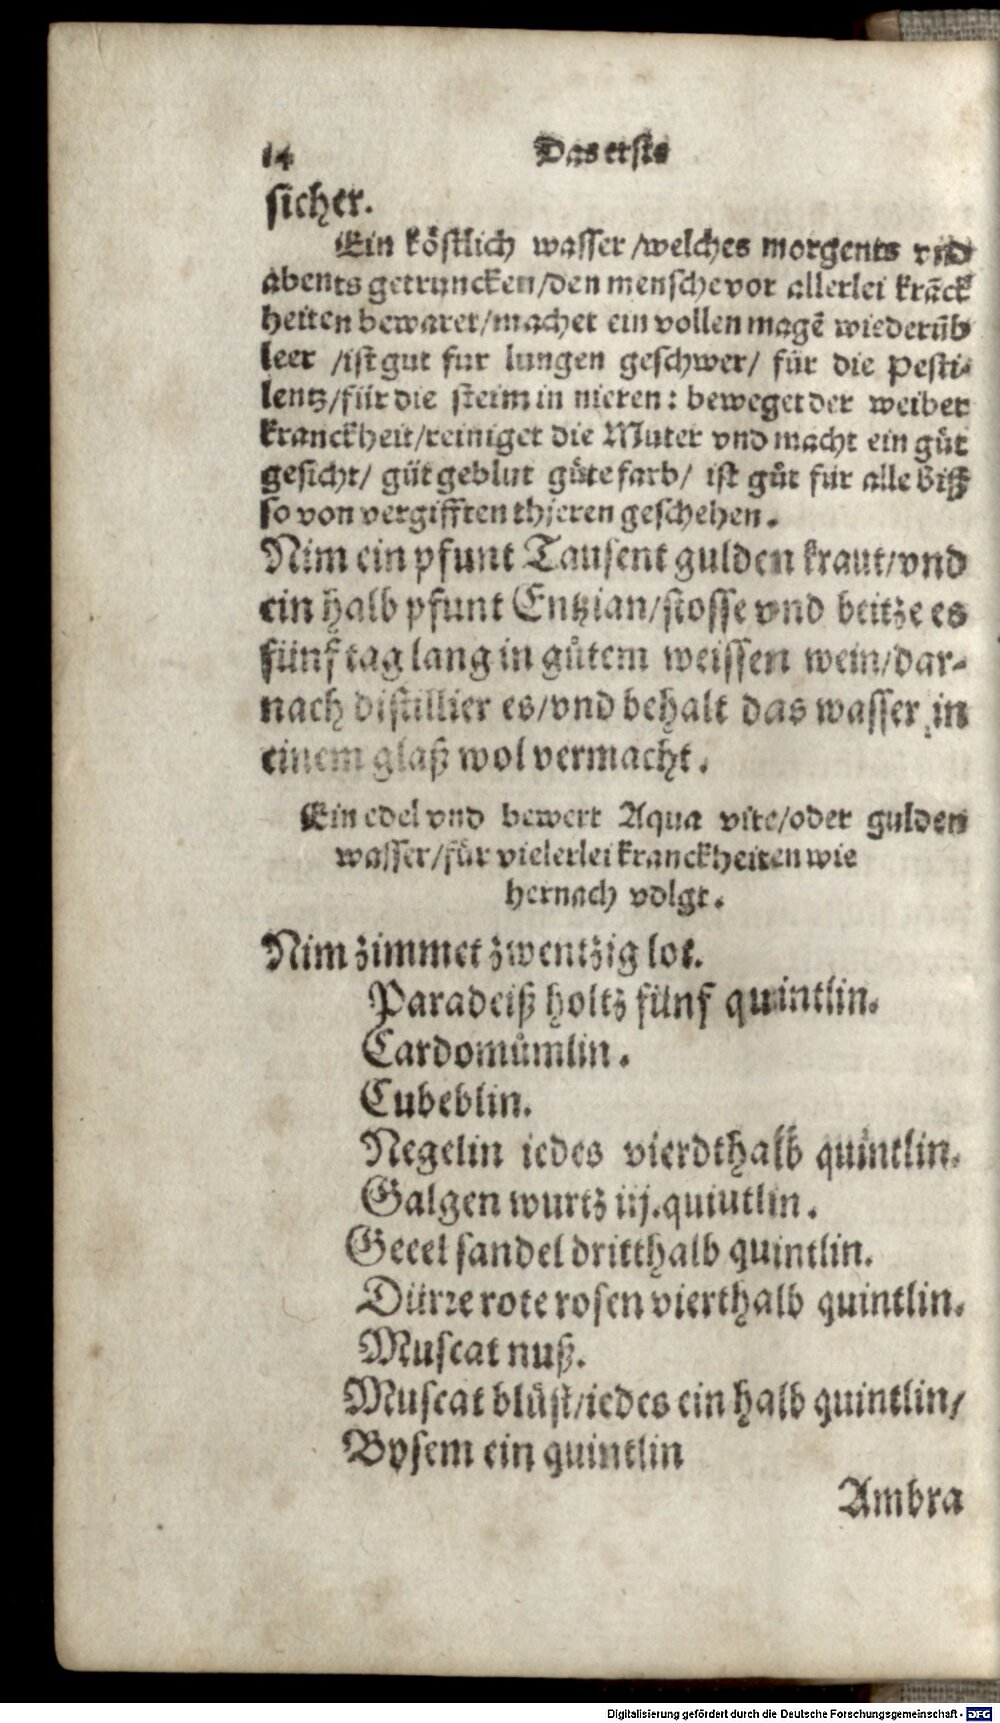 14 Das erste
sicher.
Ein köstlich wasser /welches morgents vnd
abents getruncken/den mensche vor allerlei krāck
heiten bewaret/machet ein vollen magē wiederūb
leer /ist gut fur lungen geschwer/ für die Pesti-
lentz/für die steim in nieren: beweget der weiber
kranckheit/reiniget die Muter vnd macht ein gůt
gesicht/ gůt geblut gůte farb/ ist gůt fur alle biß
so von vergifften thieren geschehen.
Nim ein pfunt Tausent gulden kraut/vnd
ein halb pfunt Entzian/stosse vnd beitze es
fünf tag lang in gůtem weissen wein/dar-
nach distillier es/vnd behalt das wasser in
einem glaß wol vermacht.
Ein edel vnd bewert Aqua vite/oder gulden
wasser/für vielerlei kranckheiten wie
hernach volgt.
Nim zimmet zwentzig lot.
Paradeiß holtz fünf quintlin.
Cardomůmlin.
Cubeblin.
Negelin iedes vierdthalb quintlin.
Galgen wurtz iij.quiutlin.
Geeel sandel dritthalb quintlin.
Dürre rote rosen vierthalb quintlin.
Muscat nuß.
Muscat blůst/iedes ein halb quintlin/
Bysem ein quintlin
Ambra
Digitalisierung gefördert durch die Deutsche Forschungsgemeinschaft - DFG